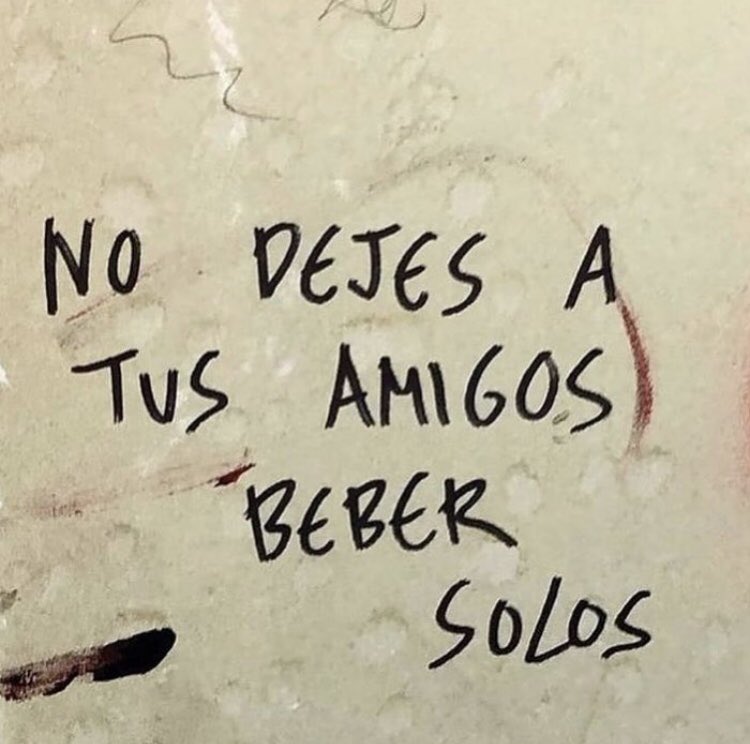 NO DEJES A
TUS AMIGOS
BEBER
SOLOS